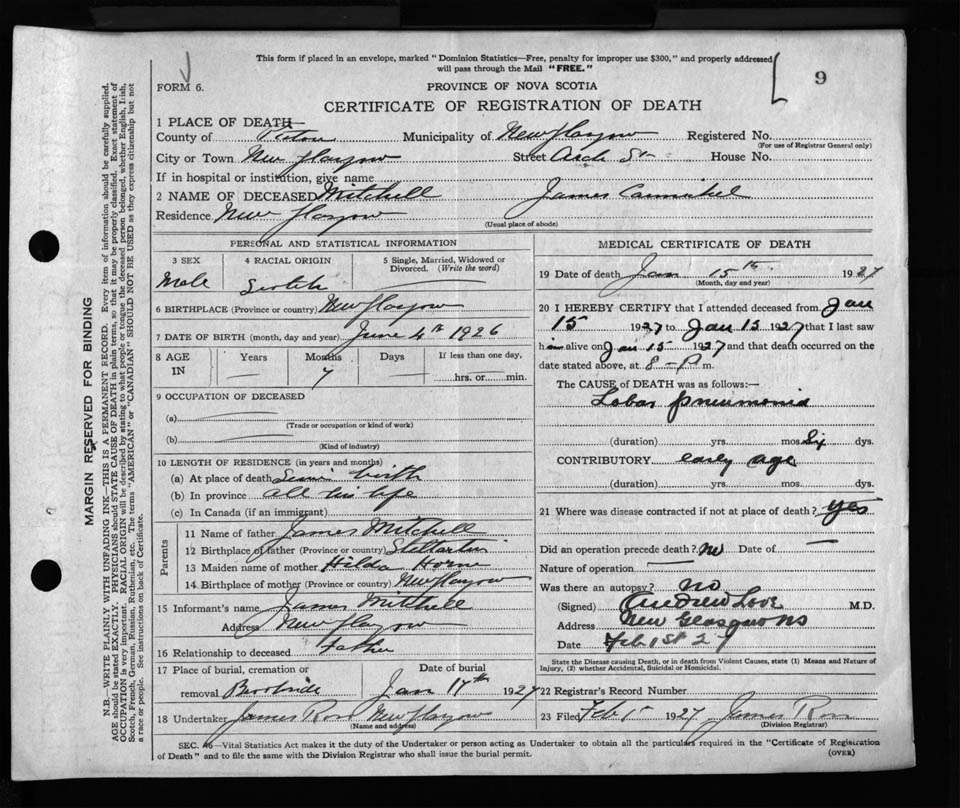 This form if placed in an envelope, marked "Dominion Statistics—Free, penalty for improper use $300," and properly addressed
will pass through the Mail "FREE."
9
FORM 6.
PROVINCE OF NOVA SCOTIA
CERTIFICATE OF REGISTRATION OF DEATH
1 PLACE OF DEATH
County of Pictou Municipality of New Glasgow Registered No.
(For use of Registrar General only)
City or Town New Glasgow Street Arch St House No.
If in hospital or institution, give name
2 NAME OF DECEASED Mitchell James
Residence New Glasgow
(Usual place of abode)
PERSONAL AND STATISTICAL INFORMATION
3 SEX 4 RACIAL ORIGIN 5 Single, Married, Widowed or Divorced. (Write the word)
Male Scotch
6 BIRTHPLACE (Province or country) New Glasgow
7 DATE OF BIRTH (month, day and year) June 4th 1926
8 AGE IN Years Months Days If less than one day,
— 7 — hrs. or min.
9 OCCUPATION OF DECEASED
(a)
(Trade or occupation or kind of work)
(b)
(Kind of industry)
10 LENGTH OF RESIDENCE (in years and months)
(a) At place of death Since birth
(b) In province all his life
(c) In Canada (if an immigrant)
Parents
11 Name of father James Mitchell
12 Birthplace of father (Province or country) Stellarton
13 Maiden name of mother Hilda Horne
14 Birthplace of mother (Province or country) New Glasgow
15 Informant's name James Mitchell
Address New Glasgow
16 Relationship to deceased Father
17 Place of burial, cremation or Date of burial
removal Jan 17th 1927
18 Undertaker James Ross New Glasgow
(Name and address)
MEDICAL CERTIFICATE OF DEATH
19 Date of death Jan 15th 1927
(Month, day and year)
20 I HEREBY CERTIFY that I attended deceased from Jan
15 1927 to Jan 15 1927 that I last saw
him alive on Jan 15 1927 and that death occurred on the
date stated above, at 8-P m.
The CAUSE of DEATH was as follows:—
Lobar pneumonia
(duration) yrs. mos. Six dys.
CONTRIBUTORY early age
(duration) yrs. mos. dys.
21 Where was disease contracted if not at place of death? yes
Did an operation precede death? no Date of —
Nature of operation —
Was there an autopsy? no
(Signed) Andrew Love M.D.
Address New Glasgow NS
Date Feb 1st 27
State the Disease causing Death, or in death from Violent Causes, state (1) Means and Nature of
Injury, (2) whether Accidental, Suicidal or Homicidal.
22 Registrar's Record Number
23 Filed Feb 1st 1927 James Ross
(Division Registrar)
SEC. 46—Vital Statistics Act makes it the duty of the Undertaker or person acting as Undertaker to obtain all the particulars required in the "Certificate of Registration
of Death" and to file the same with the Division Registrar who shall issue the burial permit. (OVER)
MARGIN RESERVED FOR BINDING
N.B.—WRITE PLAINLY WITH UNFADING INK—THIS IS A PERMANENT RECORD. Every item of information should be carefully supplied.
AGE should be stated EXACTLY. PHYSICIANS should STATE CAUSE OF DEATH in plain terms, so that it may be properly classified. Exact statement of
OCCUPATION is very important. RACIAL ORIGIN will be described by stating to what people or tongue the deceased person belonged, whether English, Irish,
Scotch, French, German, Russian, Ruthenian, etc. The terms "AMERICAN" or "CANADIAN" SHOULD NOT BE USED as they express citizenship but not
a race or people. See instructions on back of Certificate.